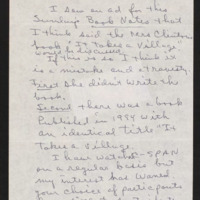 I saw an ad for this
Sunday Book Notes that
I think said the Clinton
book "It Takes a Village"
would be discussed.
If this is so I think it
is a mistake and a travesty.
First she didn't write the
book.
Second there was a book
Published in 1994 with
an identical title "It
Takes a Village.
I have watched SPAN
on a regular basis but
my interest has waned.
your choice of participants